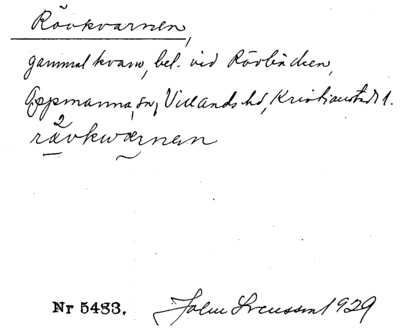 Rövkvarnen,
gammal kvarn, bel. vid Rövbäcken,
Oppmanna sn, Villands hd, Kristianstads l.
rä²vkwærnen
Nr 5483. John Svensson 1929